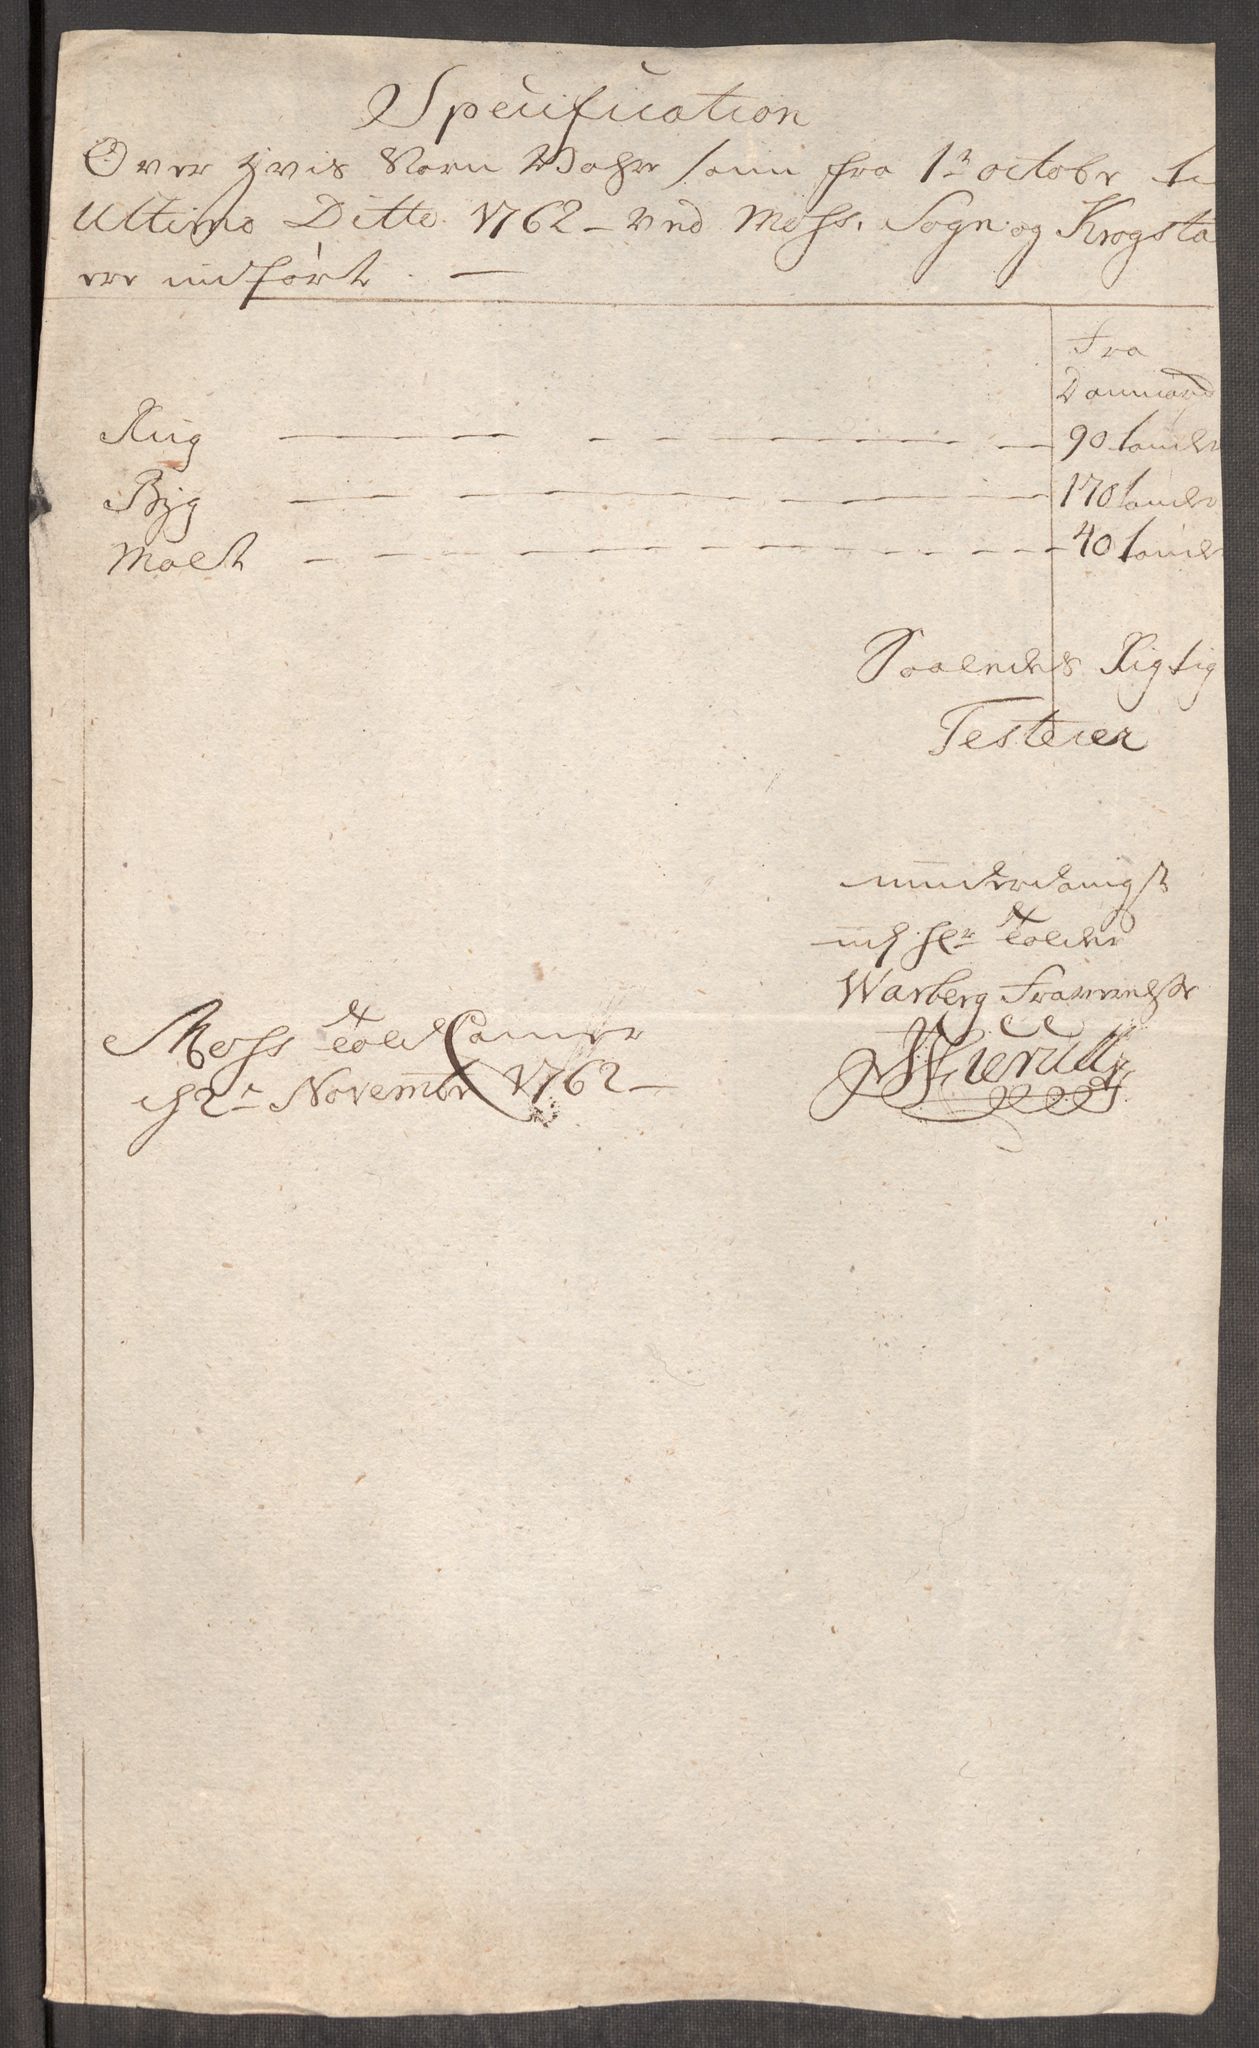 Specification
Over hvis Korn Vahre som fra 1t october ti
Ultimo Ditto 1762 – ved Moss, Sogn og Krogsta
ere indført. —
Fra
Danmarck
Rug — — — 90 tønder
Byg — — — 170 tønder
Malt — — — 40 tønder
Saaledes Rigtig
Testerer
underdanigst
udj Hr Tolder
Warberg Fraværelse
Moss Told Camer
d 2n Novembr 1762 –